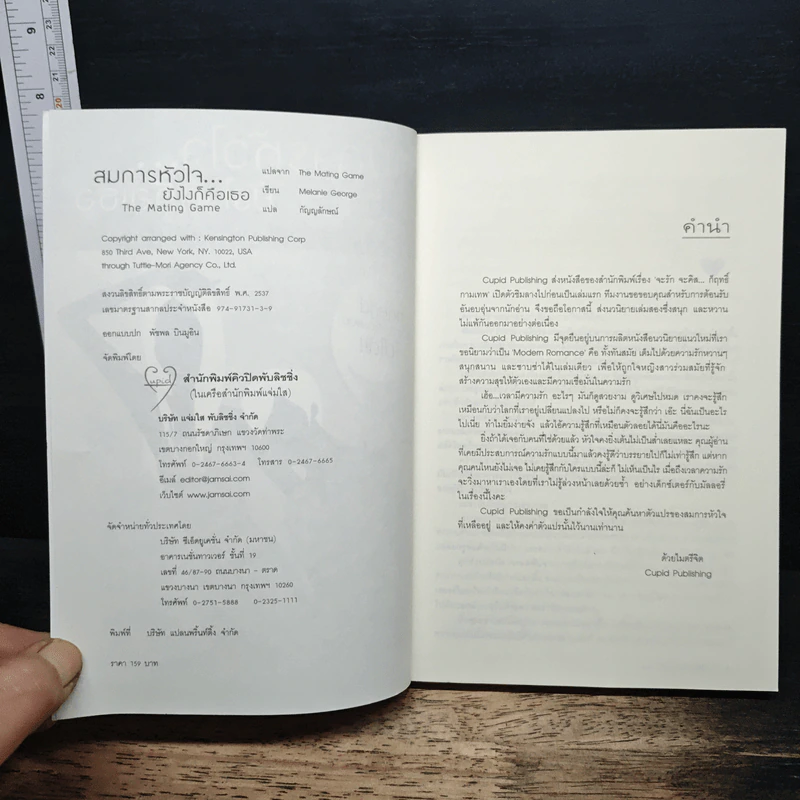 9
8
20
สมการหัวใจ...
ยังไงก็คือเธอ
The Mating Game
แปลจาก The Mating Game
เขียน Melanie George
แปล กัญญลักษณ์
Copyright arranged with : Kensington Publishing Corp
850 Third Ave, New York, NY. 10022, USA
through Tuttle-Mori Agency Co., Ltd.
สงวนลิขสิทธิ์ตามพระราชบัญญัติลิขสิทธิ์ พ.ศ. 2537
เลขมาตรฐานสากลประจำหนังสือ 974-91731-3-9
ออกแบบปก พัชพล บินมูซิน
จัดพิมพ์โดย
Cupid
สำนักพิมพ์คิวปิดพับลิชชิ่ง
(ในเครือสำนักพิมพ์แจ่มใส)
บริษัท แจ่มใส พับลิชชิ่ง จำกัด
115/7 ถนนรัชดาภิเษก แขวงวัดท่าพระ
เขตบางกอกใหญ่ กรุงเทพฯ 10600
โทรศัพท์ 0-2467-6663-4 โทรสาร 0-2467-6665
อีเมล์ editor@jamsai.com
เว็บไซต์ www.jamsai.com
จัดจำหน่ายทั่วประเทศโดย
บริษัท ซีเอ็ดยูเคชั่น จำกัด (มหาชน)
อาคารเนชั่นทาวเวอร์ ชั้นที่ 19
เลขที่ 46/87-90 ถนนบางนา - ตราด
แขวงบางนา เขตบางนา กรุงเทพฯ 10260
โทรศัพท์ 0-2751-5888 0-2325-1111
พิมพ์ที่ บริษัท แปลนพริ้นท์ติ้ง จำกัด
ราคา 159 บาท
คำนำ
Cupid Publishing ส่งหนังสือของสำนักพิมพ์เรื่อง 'จะรัก จะคิส... ก็ฤทธิ์
กามเทพ' เปิดตัวชิมลางไปก่อนเป็นเล่มแรก ทีมงานขอขอบคุณสำหรับการต้อนรับ
อันอบอุ่นจากนักอ่าน จึงขอถือโอกาสนี้ ส่งนวนิยายเล่มสองซึ่งสนุก และหวาน
ไม่แพ้กันออกมาอย่างต่อเนื่อง
Cupid Publishing มีจุดยืนอยู่บนการผลิตหนังสือนวนิยายแนวใหม่ที่เรา
ขอนิยามว่าเป็น 'Modern Romance' คือ ทั้งทันสมัย เต็มไปด้วยความรักหวานๆ
สนุกสนาน และซาบซ่าส์ในเล่มเดียว เพื่อให้ถูกใจหญิงสาวร่วมสมัยที่รู้จัก
สร้างความสุขให้ตัวเองและมีความเชื่อมั่นในความรัก
เฮ้อ...เวลามีความรัก อะไรๆ มันก็ดูสวยงาม ดูวิเศษไปหมด เราคงจะรู้สึก
เหมือนกับว่าโลกที่เราอยู่เปลี่ยนแปลงไป หรือไม่ก็คงจะรู้สึกว่า เอ๊ะ นี่ฉันเป็นอะไร
ไปเนี่ย ทำไมยิ้มง่ายจัง แล้วไอ้ความรู้สึกที่เหมือนตัวลอยได้นี่มันคืออะไรนะ
ยิ่งถ้าได้เจอกับคนที่ใช่ด้วยแล้ว หัวใจคงยิ่งเต้นไม่เป็นส่ำเลยแหละ คุณผู้อ่าน
ที่เคยมีประสบการณ์ความรักแบบนี้มาแล้วคงรู้ดีว่าบรรยายไปก็ไม่เท่ารู้สึก แต่หาก
คุณคนไหนยังไม่เจอ ไม่เคยรู้สึกกับใครแบบนี้ล่ะก็ ไม่เห็นเป็นไร เมื่อถึงเวลาความรัก
จะวิ่งมาหาเราเองโดยที่เราไม่รู้ล่วงหน้าเลยด้วยซ้ำ อย่างเด็กซ์เตอร์กับมัลลอรี่
ในเรื่องนี้ไงคะ
Cupid Publishing ขอเป็นกำลังใจให้คุณค้นหาตัวแปรของสมการหัวใจ
ที่เหลืออยู่ และให้คงค่าตัวแปรนั้นไว้นานเท่านาน
ด้วยไมตรีจิต
Cupid Publishing